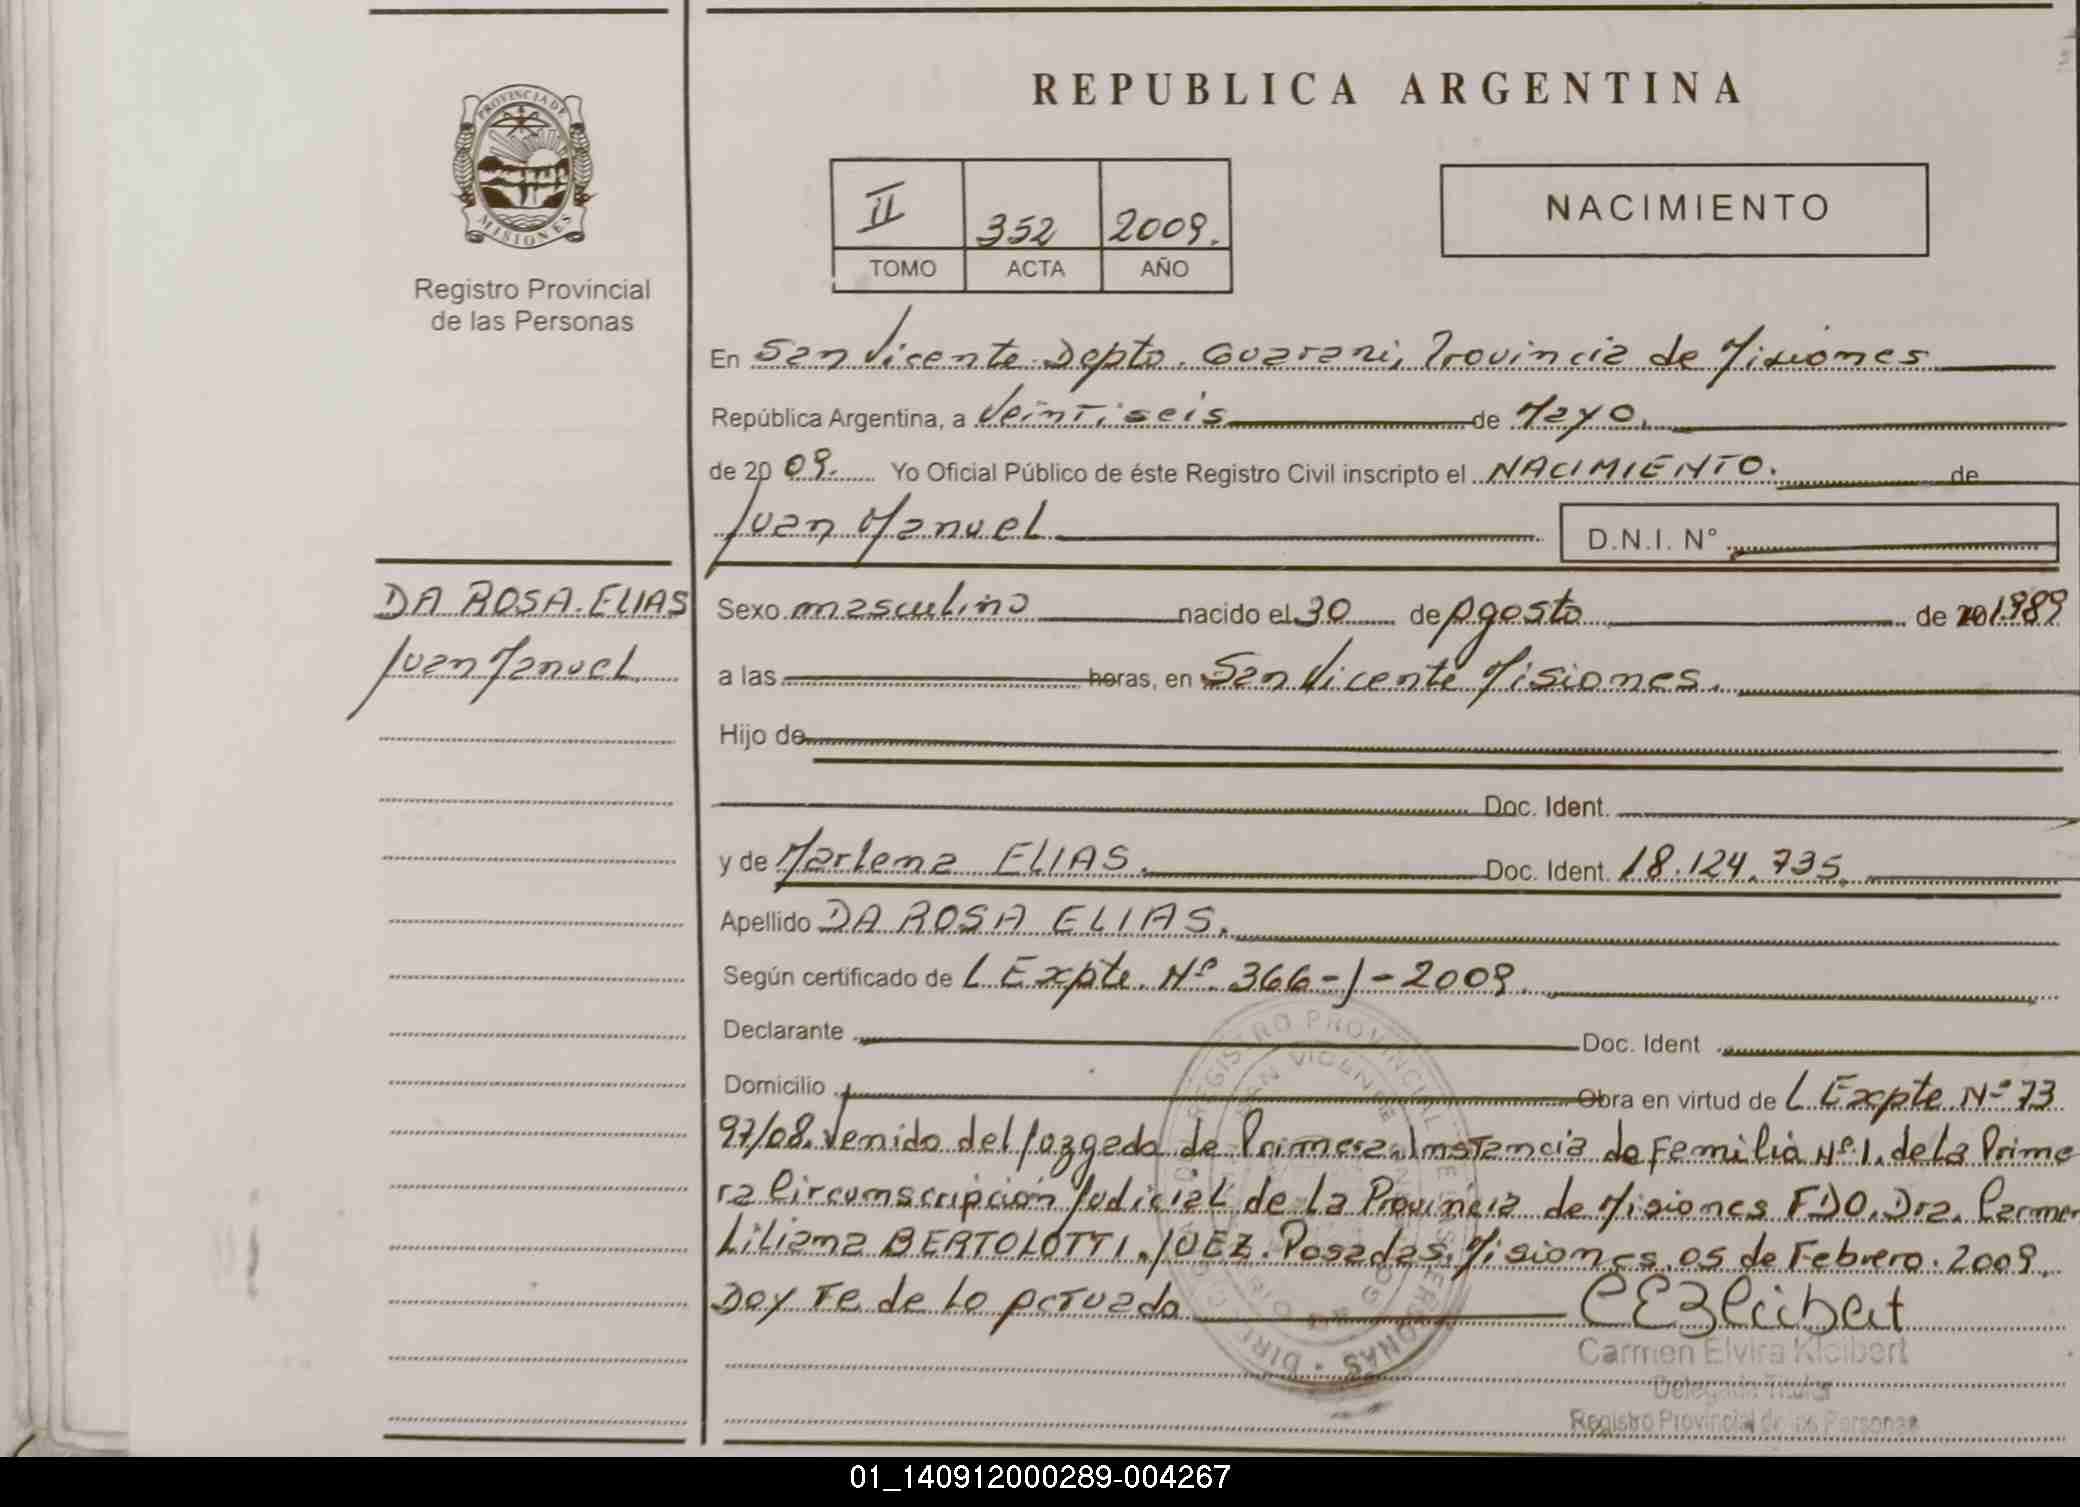 REPUBLICA ARGENTINA
PROVINCIA DE
MISIONES
Registro Provincial
de las Personas
II 352 2009.
TOMO ACTA AÑO
NACIMIENTO
En San Vicente Depto. Guarani, Provincia de Misiones
República Argentina, a Veintiseis de Mayo.
de 2009. Yo Oficial Público de éste Registro Civil inscripto el NACIMIENTO. de
Juan Manuel D.N.I. N°
DA ROSA ELIAS
Juan Manuel
Sexo masculino nacido el 30 de Agosto de 1989
a las horas, en San Vicente Misiones.
Hijo de
Doc. Ident.
y de Marlena ELIAS. Doc. Ident. 18.124.735
Apellido DA ROSA ELIAS.
Según certificado de L Expte. Nº. 366-J-2009.
Declarante Doc. Ident
Domicilio Obra en virtud de L Expte Nº 73
97/08. Venido del Juzgado de Primera Instancia de Familia Nº.1. de la Prime
ra Circumscripción Judicial de la Provincia de Misiones FDO. Dra. Carmen
Liliana BERTOLOTTI. JUEZ. Posadas, Misiones, 05 de Febrero. 2009.
Doy Fe de lo actuado
Carmen Elvira Kleibert
Delegada Titular
Registro Provincial de las Personas
01_140912000289-004267